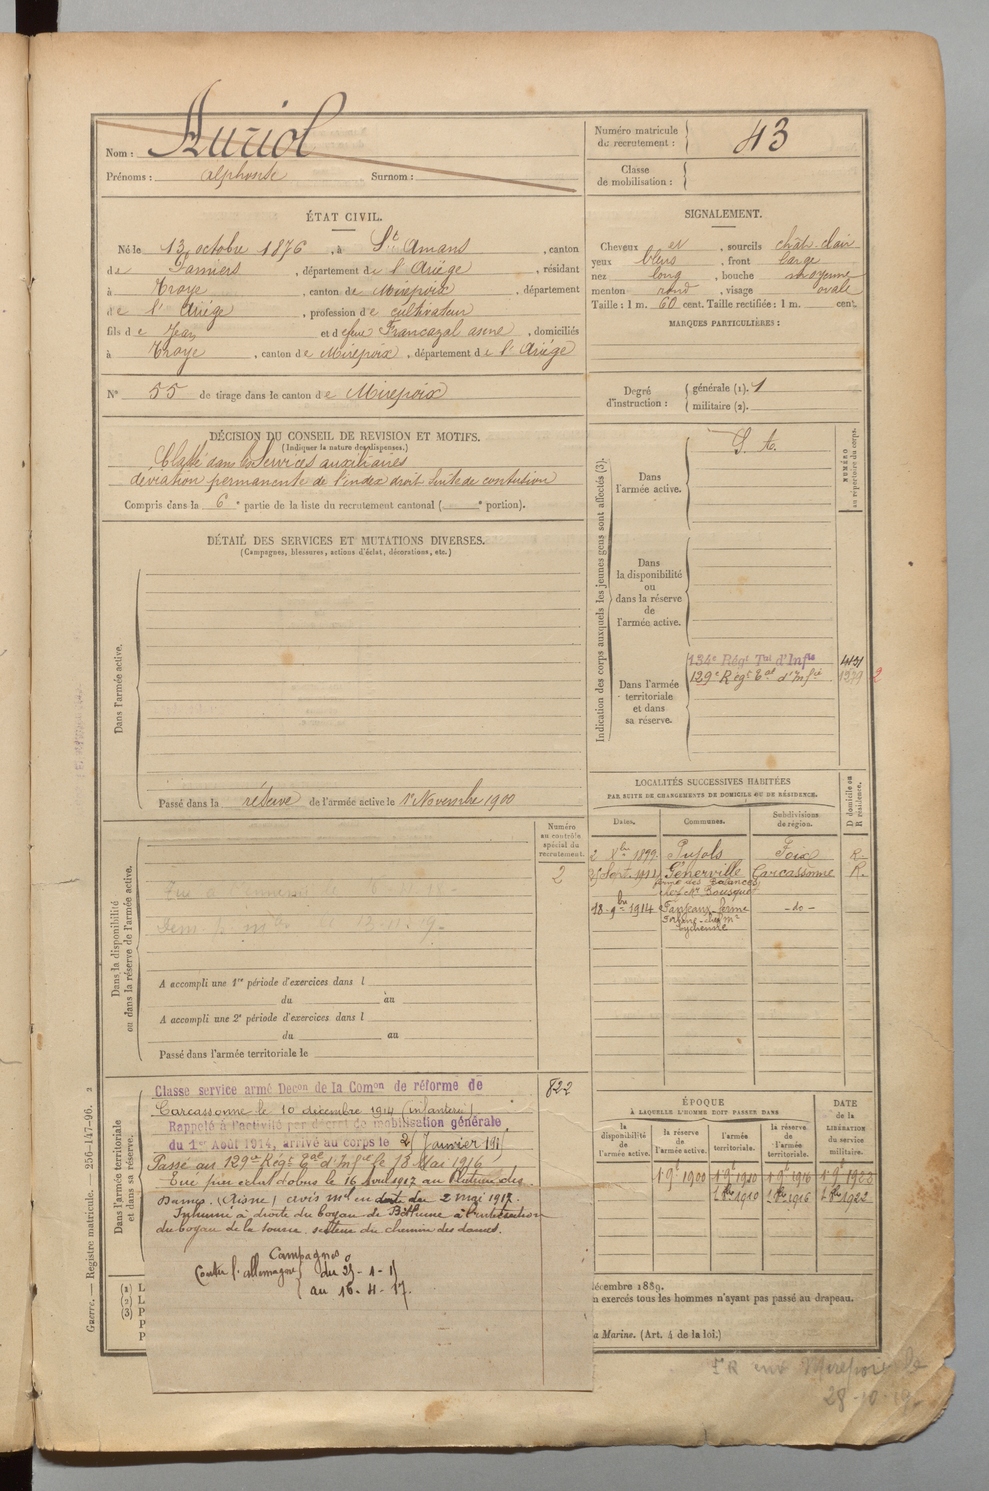 Nom : Auriol
Prénoms : Alphonse Surnom :
Numéro matricule du recrutement : 43
Classe de mobilisation :
ÉTAT CIVIL.
Né le 13 octobre 1876, à St Amans, canton
de Pamiers, département de l'Ariège, résidant
à Troye, canton de Mirepoix, département
de l'Ariège, profession de cultivateur
fils de Jean et de feue Francazal anne, domiciliés
à Troye, canton de Mirepoix, département de l'Ariège
N° 55 de tirage dans le canton de Mirepoix
SIGNALEMENT.
Cheveux et, sourcils chât. clair
yeux bleus, front large
nez long, bouche moyenne
menton rond, visage ovale
Taille : 1 m. 60 cent. Taille rectifiée : 1 m. cent.
MARQUES PARTICULIÈRES :
Degré d'instruction : générale (1). 1
militaire (2).
DÉCISION DU CONSEIL DE REVISION ET MOTIFS.
(Indiquer la nature des dispenses.)
Classé dans les Services auxiliaires
déviation permanente de l'index droit suite de contusion
Compris dans la 6e partie de la liste du recrutement cantonal ( e portion).
DÉTAIL DES SERVICES ET MUTATIONS DIVERSES.
(Campagnes, blessures, actions d'éclat, décorations, etc.)
Dans l'armée active.
Passé dans la réserve de l'armée active le 1er Novembre 1900
Indication des corps auxquels les jeunes gens sont affectés (3).
NUMÉRO au répertoire du corps.
Dans l'armée active.
S. A.
Dans la disponibilité ou dans la réserve de l'armée active.
Dans l'armée territoriale et dans sa réserve.
134e Régt Tal d'Infie 4131
129e Régt Tal d'Infie 1379 2
Dans la disponibilité ou dans la réserve de l'armée active.
Numéro au contrôle spécial du recrutement.
2
A accompli une 1re période d'exercices dans l
du au
A accompli une 2e période d'exercices dans l
du au
Passé dans l'armée territoriale le
LOCALITÉS SUCCESSIVES HABITÉES
PAR SUITE DE CHANGEMENTS DE DOMICILE OU DE RÉSIDENCE.
Dates. Communes. Subdivisions de région. D domicile ou R résidence.
2 Xbre 1899 Pujols Foix R.
Sept. 1911 Generville Carcassonne R.
ferme des
chez Mr Bousquet
18 9bre 1914 Fanjeaux ferme - do -
Dans l'armée territoriale et dans sa réserve.
Classé service armé Decon de la Comon de réforme de 822
Carcassonne le 10 décembre 1914 (infanterie)
Rappelé à l'activité par décret de mobilisation générale
du 1er Août 1914, arrivé au corps le Janvier 191
Passé au 129e Régt Tal d'Infie le 18 Mai 1916
Tué par éclat d'obus le 16 Avril 1917 au Plateau des
(Aisne) avis Mel en date du 2 mai 1917.
Inhumé à droite du boyau de Béthune à l'intersection
du boyau de la source secteur du chemin des dames.
Campagnes
Contre l'allemagne du
au 16-4-17.
ÉPOQUE
À LAQUELLE L'HOMME DOIT PASSER DANS
la disponibilité de l'armée active.
la réserve de l'armée active.
l'armée territoriale.
la réserve de l'armée territoriale.
DATE de la LIBÉRATION du service militaire.
1 9bre 1900 1 9bre 1910 1 9bre 1916
1 8bre 1910 1 8bre 1916 1 8bre 1922
Guerre. — Registre matricule. — 256-147-96. 2
(1)
(2)
(3)
décembre 1889.
n exercés tous les hommes n'ayant pas passé au drapeau.
a Marine. (Art. 4 de la loi.)